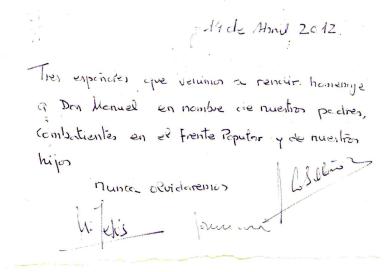 14 de Abril 2012
Tres españoles que venimos a rendir homenaje
a Don Manuel en nombre de nuestros padres,
combatientes en el Frente Popular y de nuestros
hijos
Nunca olvidaremos